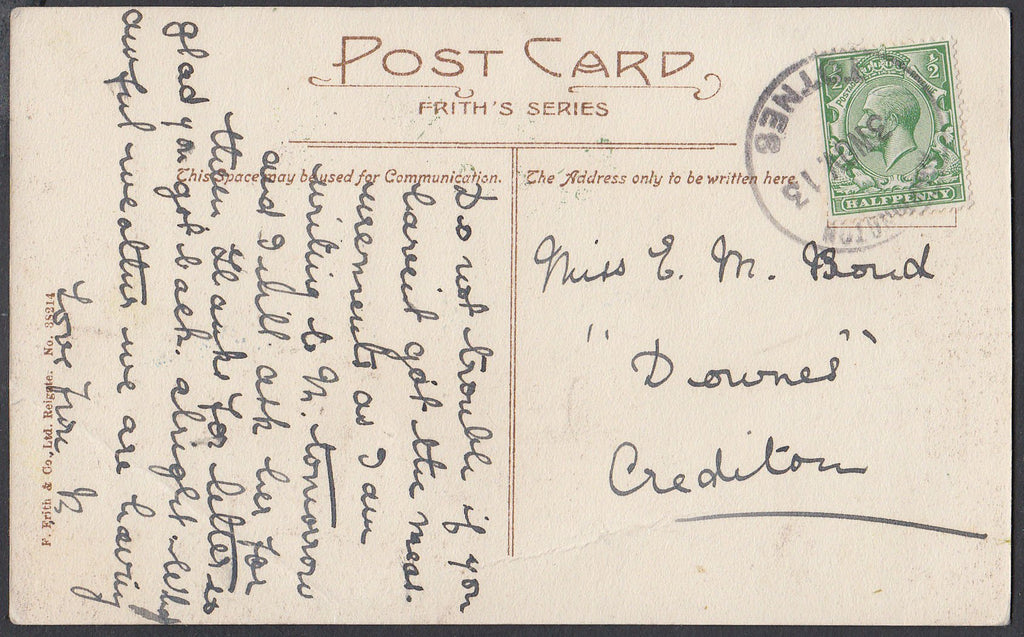 POST CARD
FRITH'S SERIES
This Space may be used for Communication.
The Address only to be written here.
HALFPENNY
½ ½
TOTNES
13
Miss E. M. Bond
"Downes"
Crediton
Do not trouble if you
havent got the meas-
urements as I am
writing to M. tomorrow
and I will ask her for
them Thanks for letter so
glad you got back alright. What
awful weather we are having
Love from
F. Frith & Co., Ltd. Reigate. No. 38214